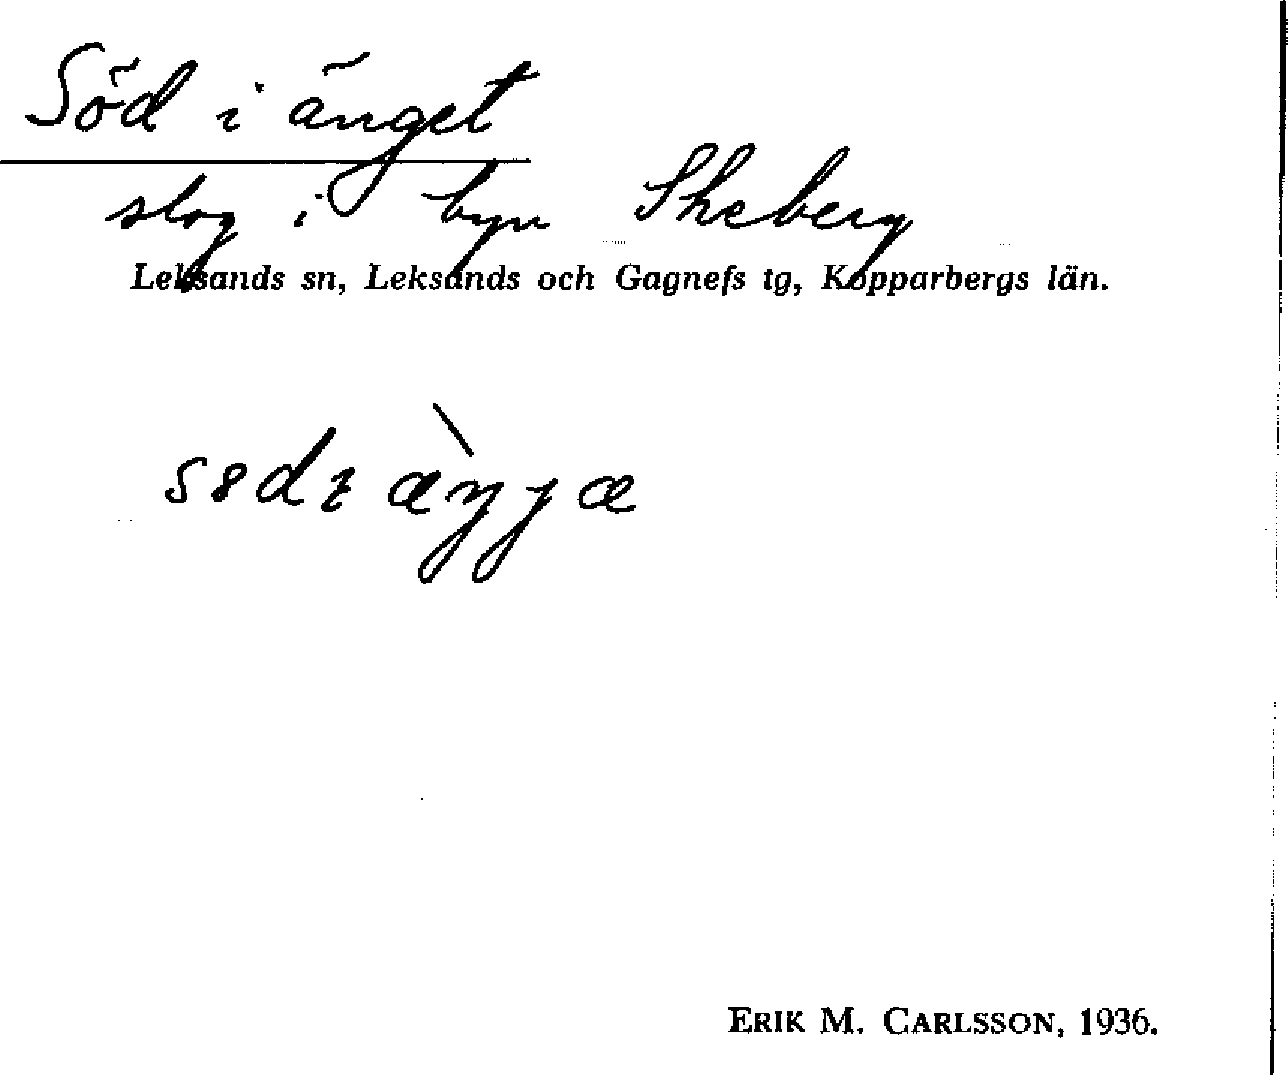 Söd i änget
slog i byn Skeberg
Leksands sn, Leksands och Gagnefs tg, Kopparbergs län.
ERIK M. CARLSSON, 1936.